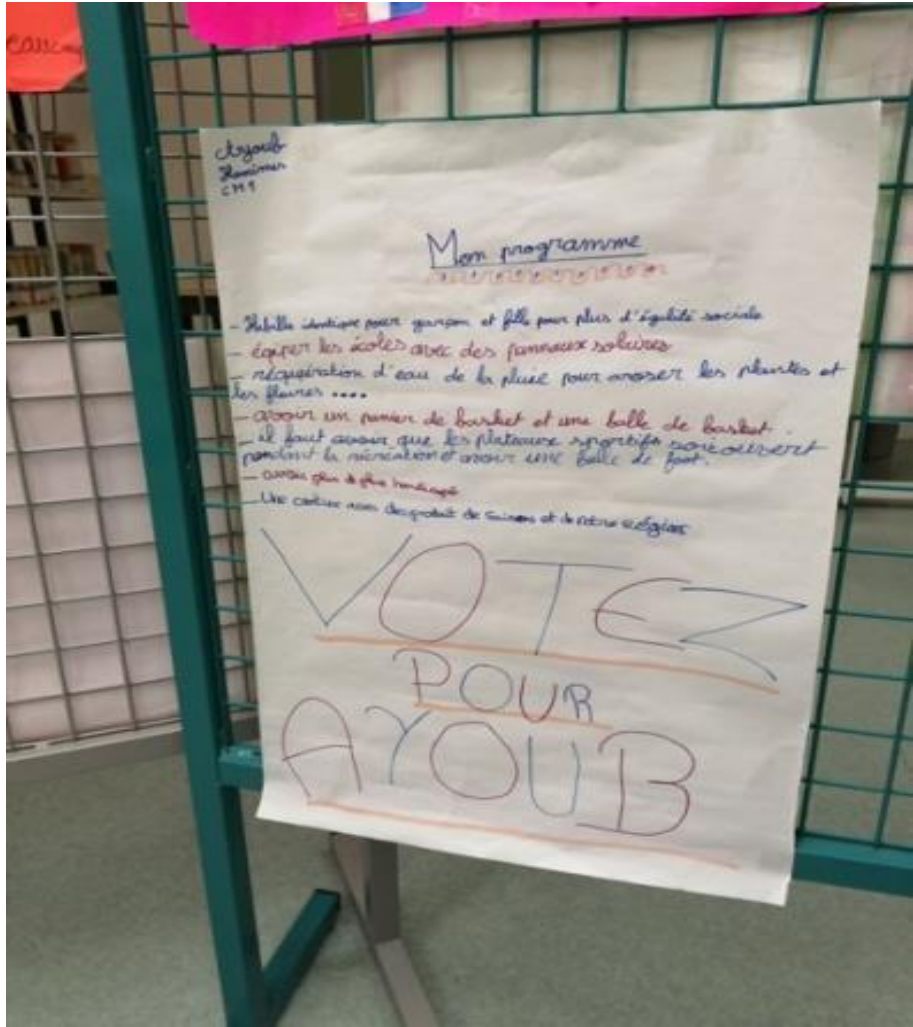 Ayoub
CM1
Mon programme
- Habille identique pour garçon et fille pour plus d'égalité sociale
- équiper les écoles avec des panneaux solaires
- réqupération d'eau de la pluie pour aroser les plantes et
les fleures ....
- avoir un panier de basket et une balle de basket.
- il faut avoir que les plateaux sportifs soit ouvert
pendant la récréation et avoir une balle de foot.
- avoir plus de
- Une cantine avec des produit de saisons et de notre
VOTEZ
POUR
AYOUB